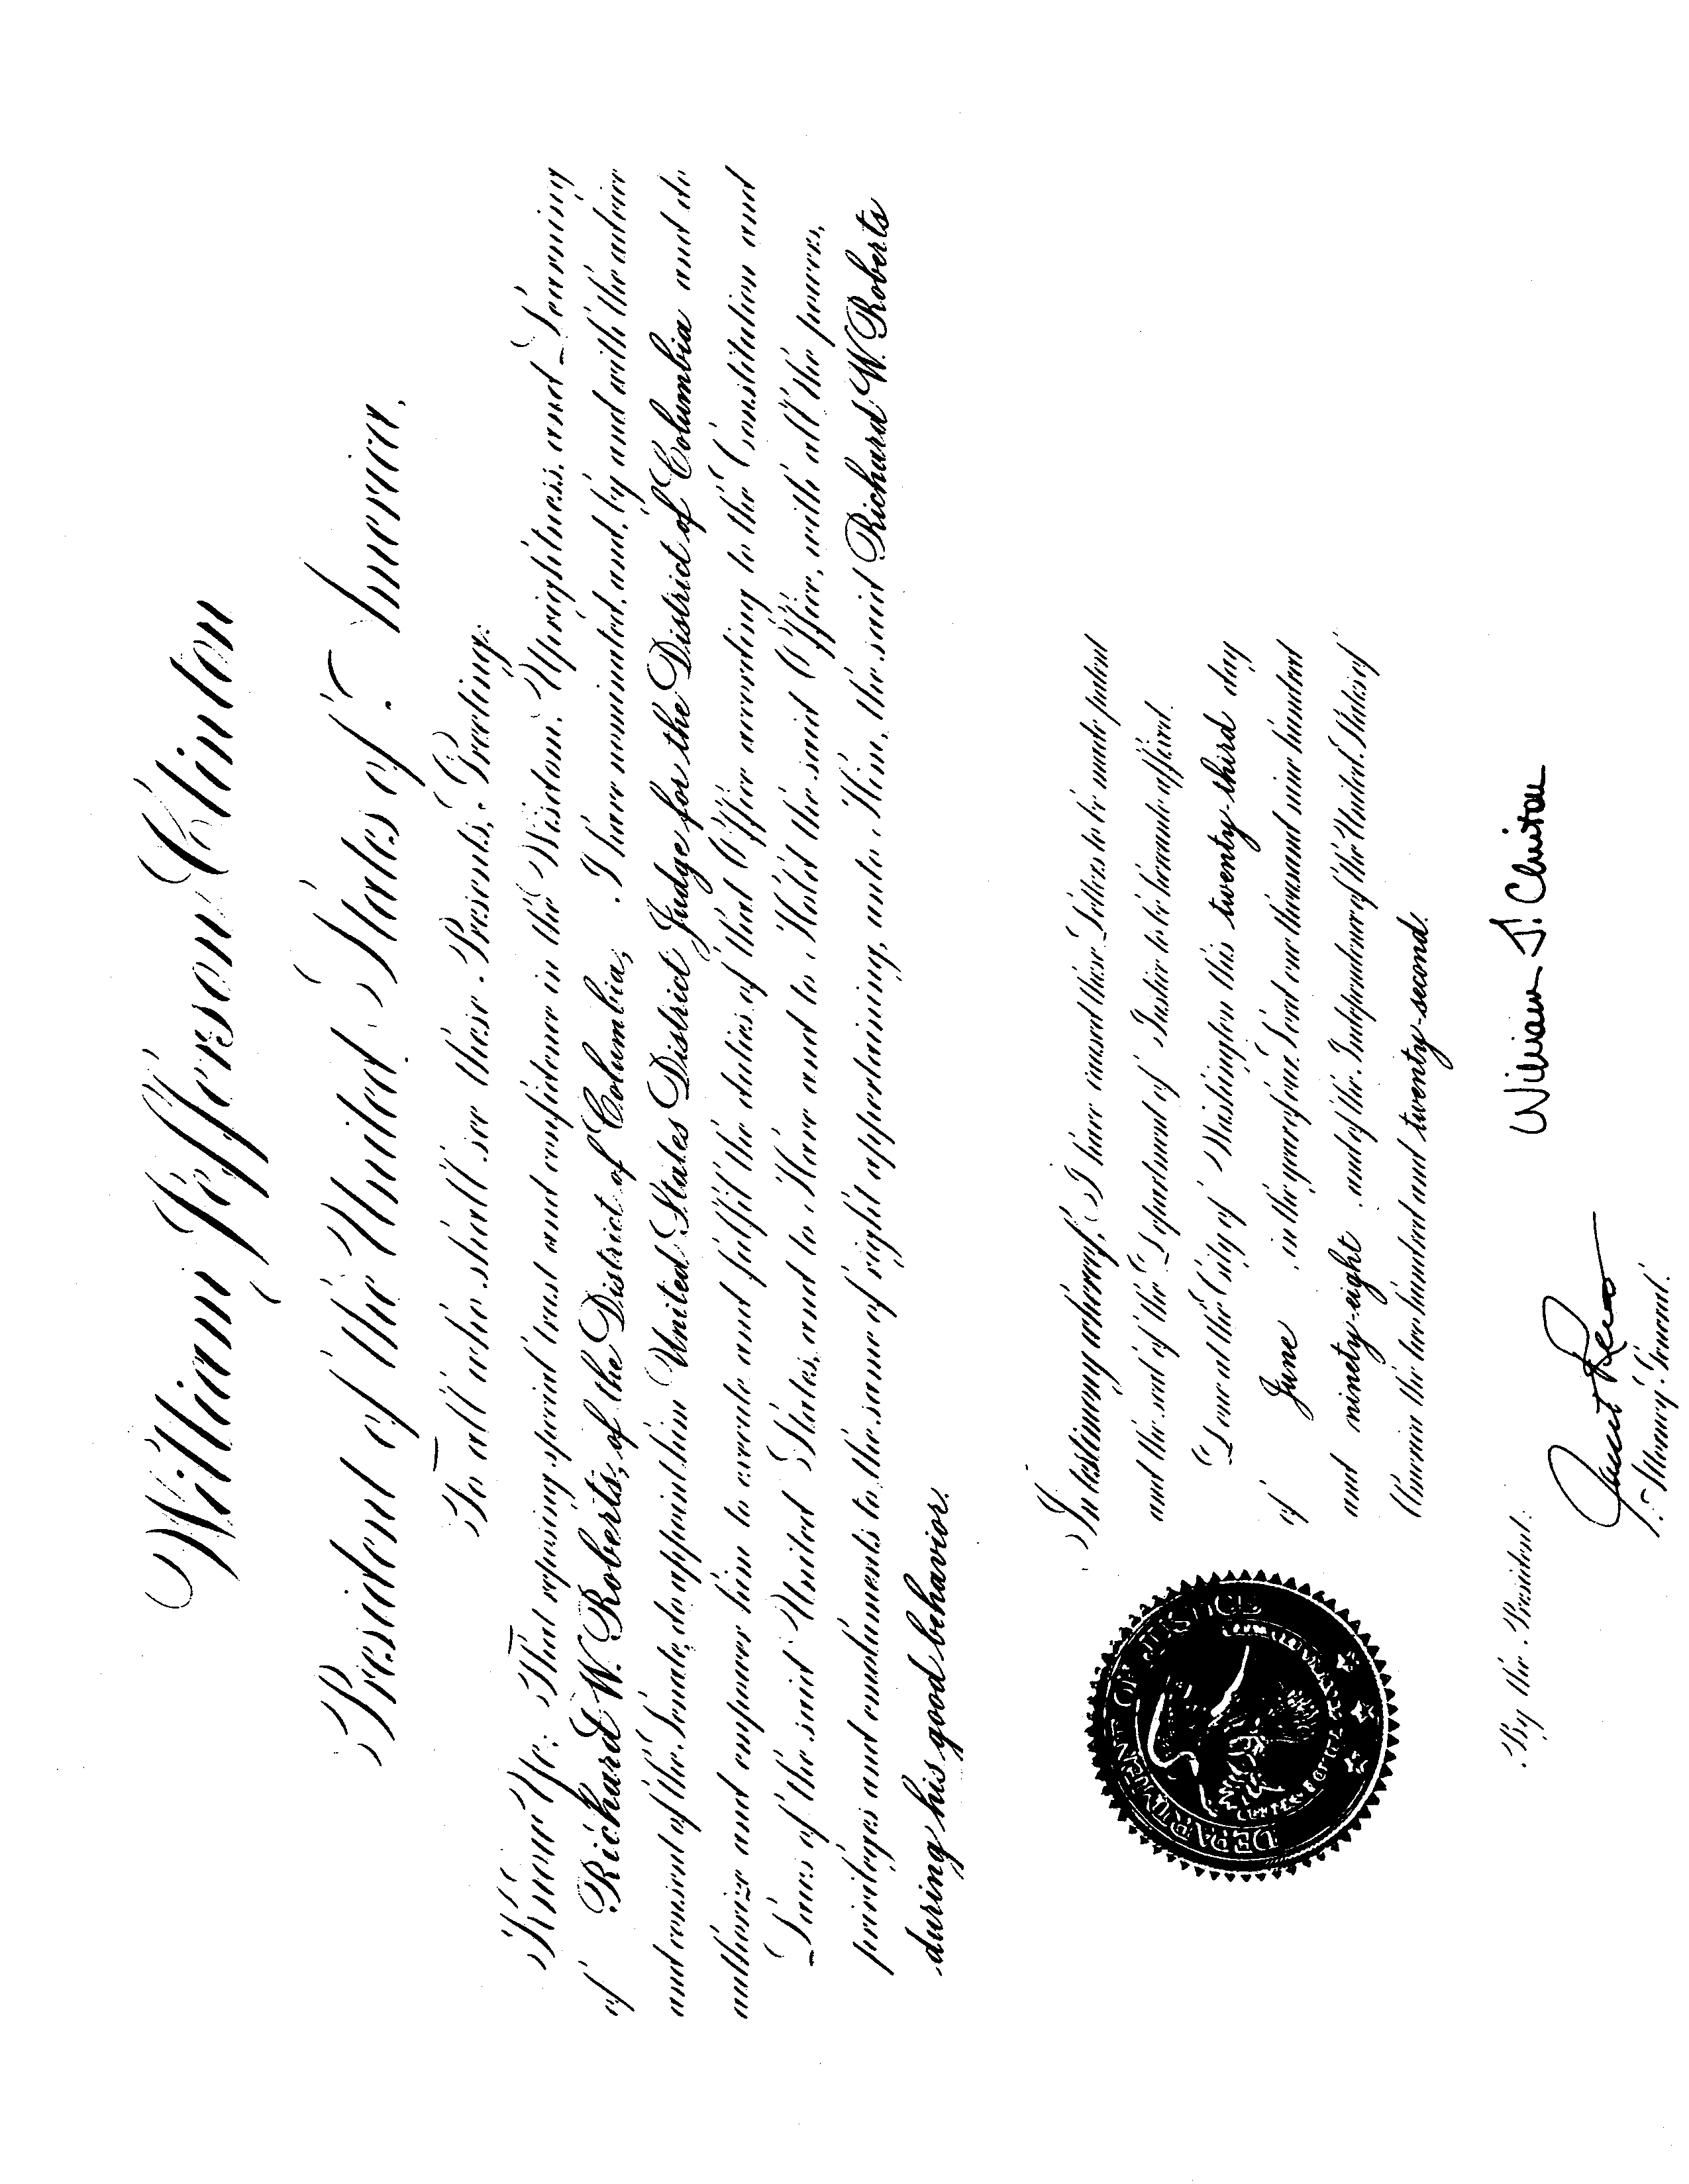 William Jefferson Clinton
President of the United States of America.
To all who shall see these Presents, Greeting:
Know Ye; That reposing special trust and confidence in the Wisdom, Uprightness, and Learning
of Richard W. Roberts, of the District of Columbia, I have nominated, and, by and with the advice
and consent of the Senate, do appoint him United States District Judge for the District of Columbia and do
authorize and empower him to execute and fulfil the duties of that Office according to the Constitution and
Laws of the said United States, and to Have and to Hold the said Office, with all the powers,
privileges and emoluments to the same of right appertaining, unto Him, the said Richard W. Roberts
during his good behavior.
In testimony whereof, I have caused these Letters to be made patent
and the seal of the Department of Justice to be hereunto affixed.
Done at the City of Washington this twenty-third day
of June in the year of our Lord one thousand nine hundred
and ninety-eight and of the Independence of the United States of
America the two hundred and twenty-second.
DEPARTMENT OF JUSTICE
William J. Clinton
By the President:
Janet Reno
Attorney General.